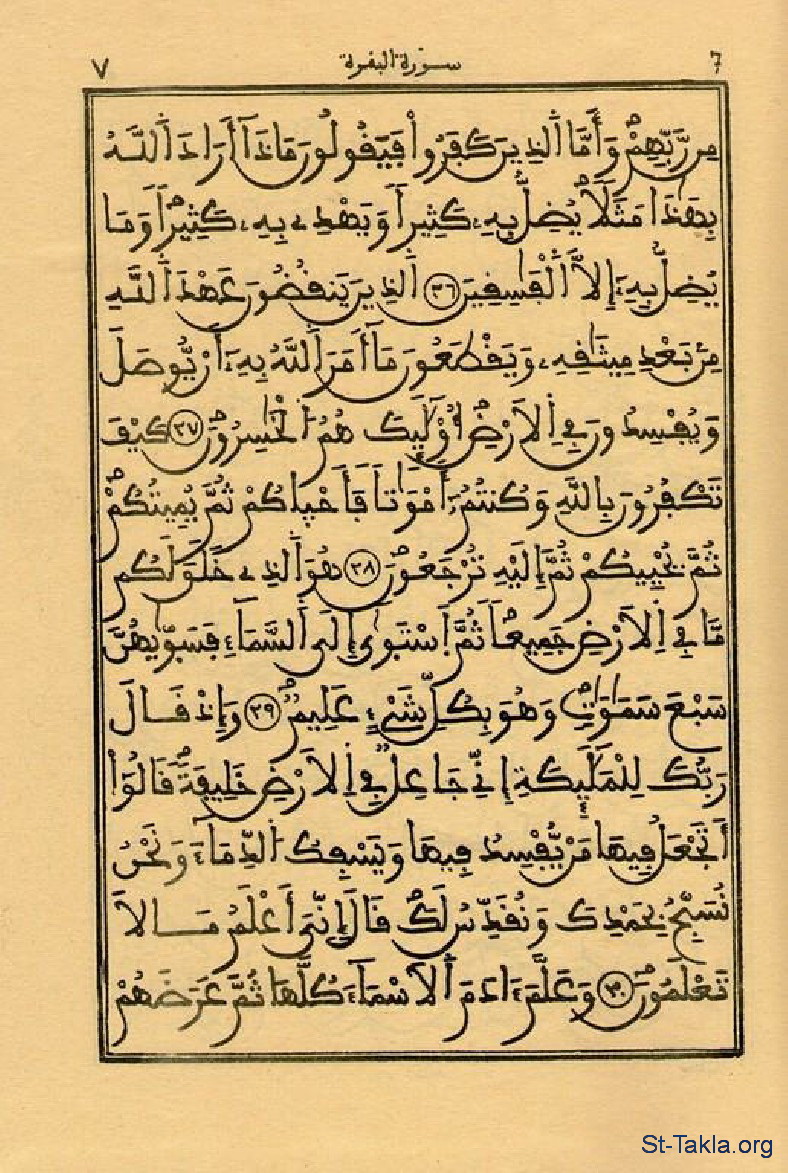 سورة البقرة ٧
مِن رَّبِّهِمْ وَأَمَّا ٱلذِينَ كَفَرُوا۟ فَيَقُولُونَ مَاذَآ أَرَادَ ٱللَّهُ
بِهَٰذَا مَثَلًا يُضِلُّ بِهِۦ كَثِيرًا وَيَهْدِے بِهِۦ كَثِيرًا وَمَا
يُضِلُّ بِهِۦٓ إِلَّا ٱلْفَٰسِقِينَ ٢٦ ٱلذِينَ يَنقُضُونَ عَهْدَ ٱللَّهِ
مِنۢ بَعْدِ مِيثَٰقِهِۦ وَيَقْطَعُونَ مَآ أَمَرَ ٱللَّهُ بِهِۦٓ أَنْ يُّوصَلَ
وَيُفْسِدُونَ فِے اِلَارْضِ أُوْلَٰٓئِكَ هُمُ ٱلْخَٰسِرُونَ ٢٧ كَيْفَ
تَكْفُرُونَ بِاللَّهِ وَكُنتُمُۥٓ أَمْوَٰتًا فَأَحْيَاكُمْ ثُمَّ يُمِيتُكُمْ
ثُمَّ يُحْيِيكُمْ ثُمَّ إِلَيْهِ تُرْجَعُونَ ٢٨ هُوَ ٱلذِے خَلَقَ لَكُم
مَّا فِے اِلَارْضِ جَمِيعًا ثُمَّ ٱسْتَوَىٰٓ إِلَى ٱلسَّمَآءِ فَسَوّٰيٰهُنَّ
سَبْعَ سَمَٰوَٰتٍ وَهُوَ بِكُلِّ شَےْءٍ عَلِيمٌ ٢٩ وَإِذْ قَالَ
رَبُّكَ لِلْمَلَٰٓئِكَةِ إِنِّے جَاعِلٌ فِے اِلَارْضِ خَلِيفَةً قَالُوٓا۟
أَتَجْعَلُ فِيهَا مَنْ يُّفْسِدُ فِيهَا وَيَسْفِكُ ٱلدِّمَآءَ وَنَحْنُ
نُسَبِّحُ بِحَمْدِكَ وَنُقَدِّسُ لَكَ قَالَ إِنِّىَ أَعْلَمُ مَا لَا
تَعْلَمُونَ ٣٠ وَعَلَّمَ ءَادَمَ ٱلَاسْمَآءَ كُلَّهَا ثُمَّ عَرَضَهُمْ
St-Takla.org